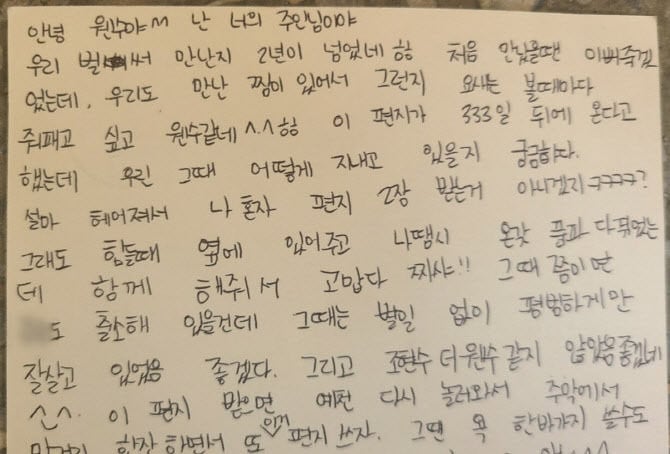 안녕 원수야 ^^ 난 너의 주인님이야
우리 벌써 만난지 2년이 넘었네 ㅎㅎ 처음 만났을땐 이뻐죽겠
었는데, 우리도 만난 찜이 있어서 그런지 요새는 볼때마다
줘패고 싶고 원수같네 ^.^ ㅎㅎ 이 편지가 333일 뒤에 온다고
했는데 우린 그때 어떻게 지내고 있을지 궁금하다.
설마 헤어져서 나 혼자 편지 2장 받는거 아니겠지ㅋㅋㅋㅋ?
그래도 힘들때 옆에 있어주고 나땜시 온갖 풍파 다겪었는
데 함께 해줘서 고맙다 짜샤!! 그때 쯤이면
도 출소해 있을건데 그때는 별일 없이 평범하게만
잘살고 있었음 좋겠다. 그리고 조현수 더 원수 같지 않았음 좋겠네
^.^. 이 편지 받으면 예전 다시 놀러와서 주막에서
한잔 하면서 또 편지 쓰자. 그땐 욕 한바가지 쓸수도